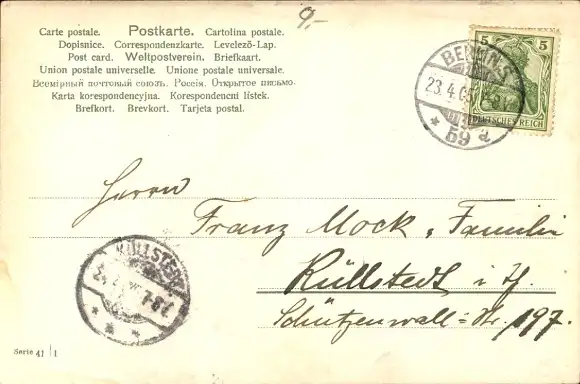 9,-
Carte postale. Postkarte. Cartolina postale.
Dopisnice. Correspondenzkarte. Levelező-Lap.
Post card. Weltpostverein. Briefkaart.
Union postale universelle. Unione postale universale.
Всемірный почтовый союзъ. Россія. Открытое письмо.
Karta korespondencyjna. Korespondenční lístek.
Brefkort. Brevkort. Tarjeta postal.
5 5
DEUTSCHES REICH
BERLIN.S
23.4.05
* 59 a
Herrn
Franz Mock u. Familie
Küllstedt i. Th.
Schützenwall-Nr. 197.
KÜLLSTEDT
7-8
* * *
Serie 41 | 1